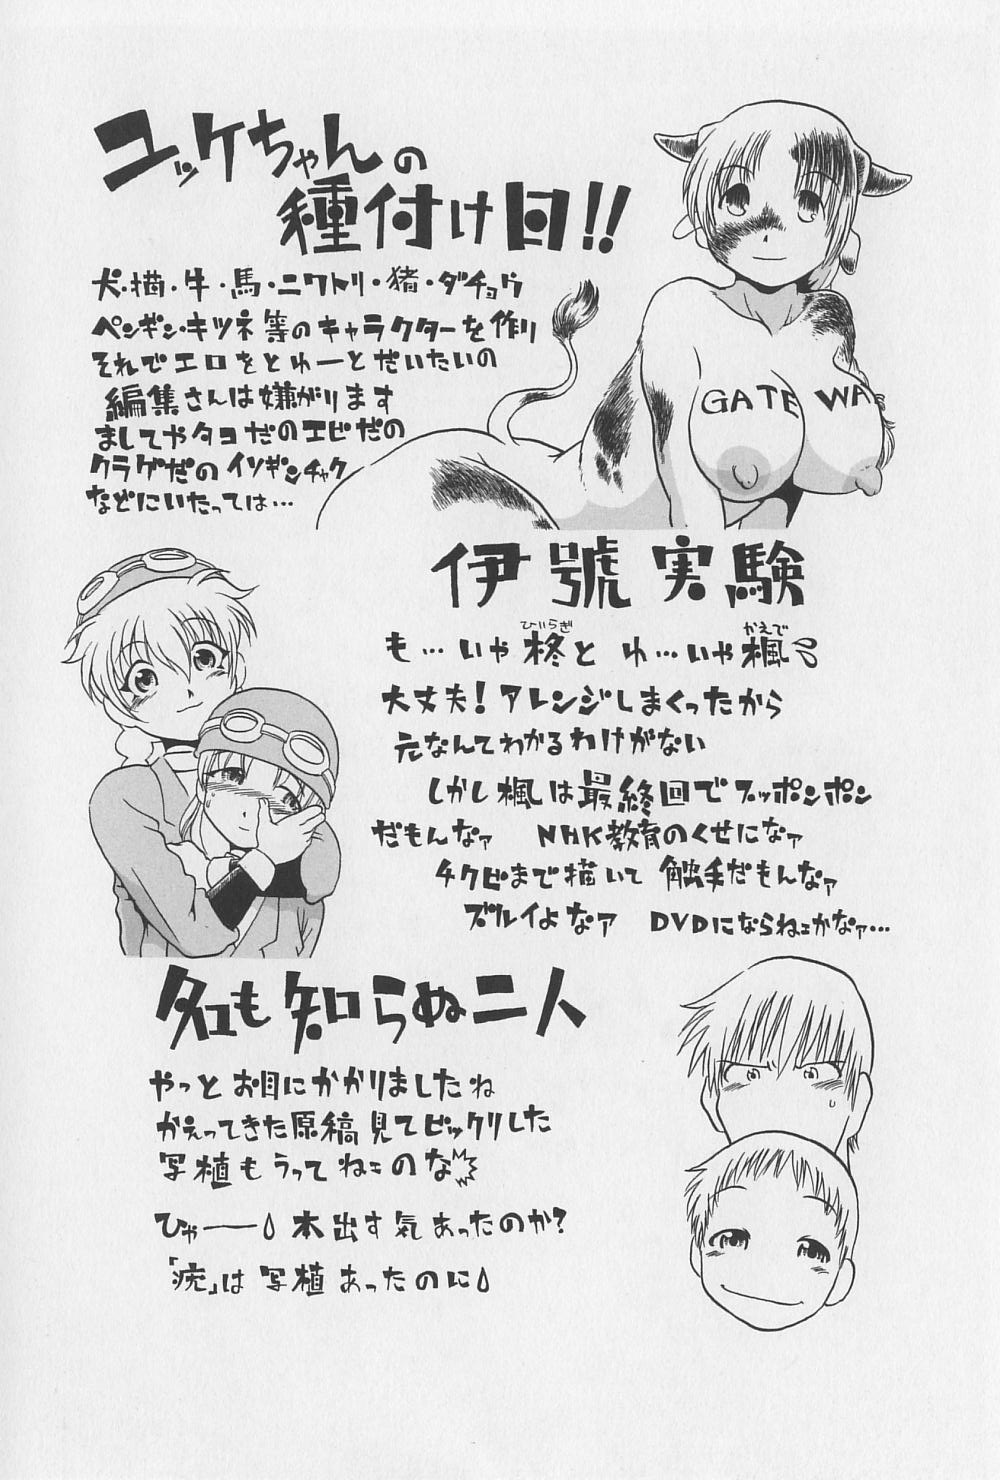 ユッケちゃんの
種付け日!!
犬・猫・牛・馬・ニワトリ・猪・ダチョウ
ペンギン・キツネ等のキャラクターを作り
それでエロをとゆーとだいたいの
編集さんは嫌がります
ましてやタコだのエビだの
クラゲだのイソギンチャク
などにいたっては…
GATE WA
伊號実験
も…いや柊と ゆ…いや楓
ひいらぎ かえで
大丈夫!アレンジしまくったから
元なんてわかるわけがない
しかし楓は最終回でスッポンポン
だもんなァ NHK教育のくせになァ
チクビまで描いて 触手だもんなァ
ズルイよなァ DVDにならねェかなァ…
名も知らぬ二人
やっとお目にかかりましたね
かえってきた原稿見てビックリした
写植もうってねェのな
ひゃー 本出す気あったのか?
「疣」は写植あったのに